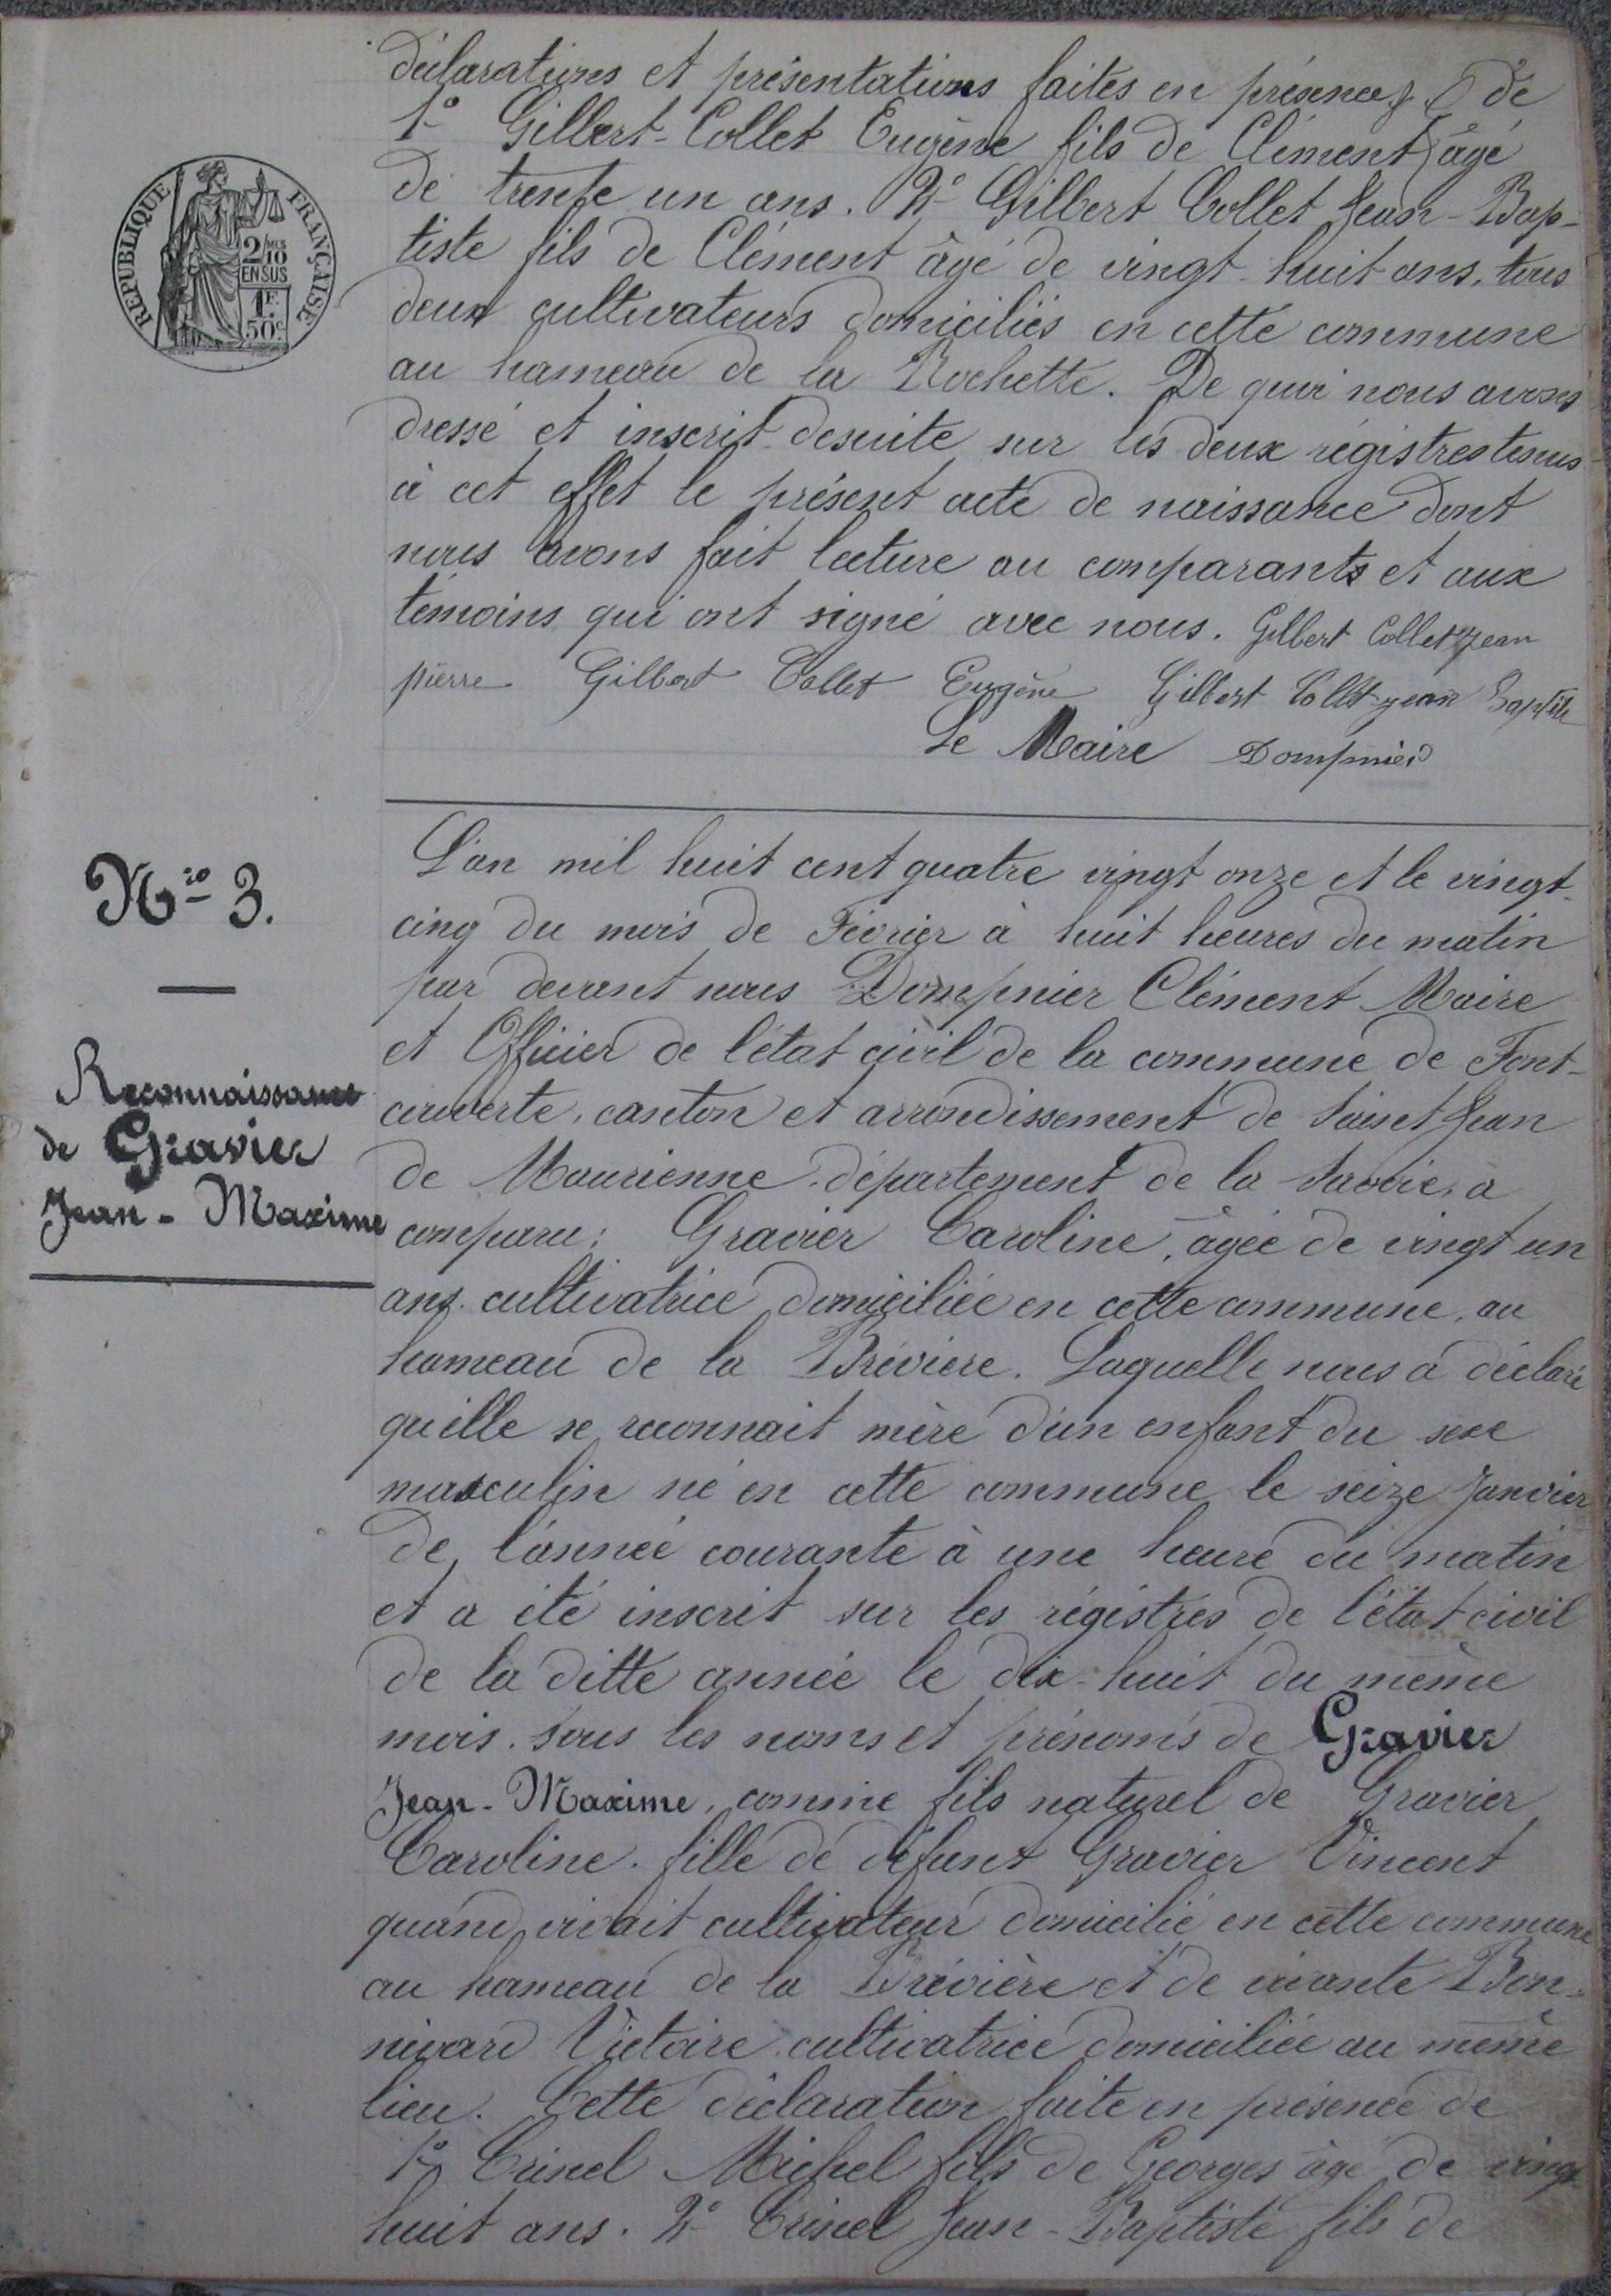 déclarations et présentations faites en présence de
1° Gilbert-Collet Eugène fils de Clément âgé
de trente un ans. 2° Gilbert Collet Jean-Bap-
tiste fils de Clément âgé de vingt-huit ans, tous
deux cultivateurs domiciliés en cette commune
au hameau de la Rochette. De quoi nous avons
dressé et inscrit desuite sur les deux régistres tenus
à cet effet le présent acte de naissance dont
nous avons fait lecture au comparants et aux
témoins qui ont signé avec nous. Gilbert Collet Jean
pierre Gilbert Collet Eugène Gilbert Collet jean Baptiste
Le Maire Dompnier
REPUBLIQUE FRANÇAISE
2/10 MES
EN SUS
1F.
50c.
Nro 3.
Reconnaissance
de Gravier
Jean-Maxime
L'an mil huit cent quatre vingt onze et le vingt-
cinq du mois de Février à huit heures du matin
par devant nous Dompnier Clément Maire
et Officier de l'état civil de la commune de Font-
couverte, canton et arrondissement de Saint Jean
de Maurienne, département de la Savoie, a
comparu: Gravier Caroline, âgée de vingt un
ans cultivatrice domiciliée en cette commune, au
hameau de la Brévière. Laquelle nous a déclaré
qu'elle se reconnait mère d'un enfant du sexe
masculin né en cette commune le seize Janvier
de l'année courante à une heure du matin
et a été inscrit sur les régistres de l'état civil
de la ditte année le dix-huit du même
mois. sous les noms et prénoms de Gravier
Jean-Maxime, comme fils naturel de Gravier
Caroline. fille de défunt Gravier Vincent
quand vivait cultivateur domicilié en cette commune
au hameau de la Brévière et de vivante Bon-
nivard Victoire cultivatrice domiciliée au même
lieu. Cette déclaration faite en présence de
1° Crinel Michel fils de Georges âgé de vingt
huit ans. 2° Crinel Jean-Baptiste fils de